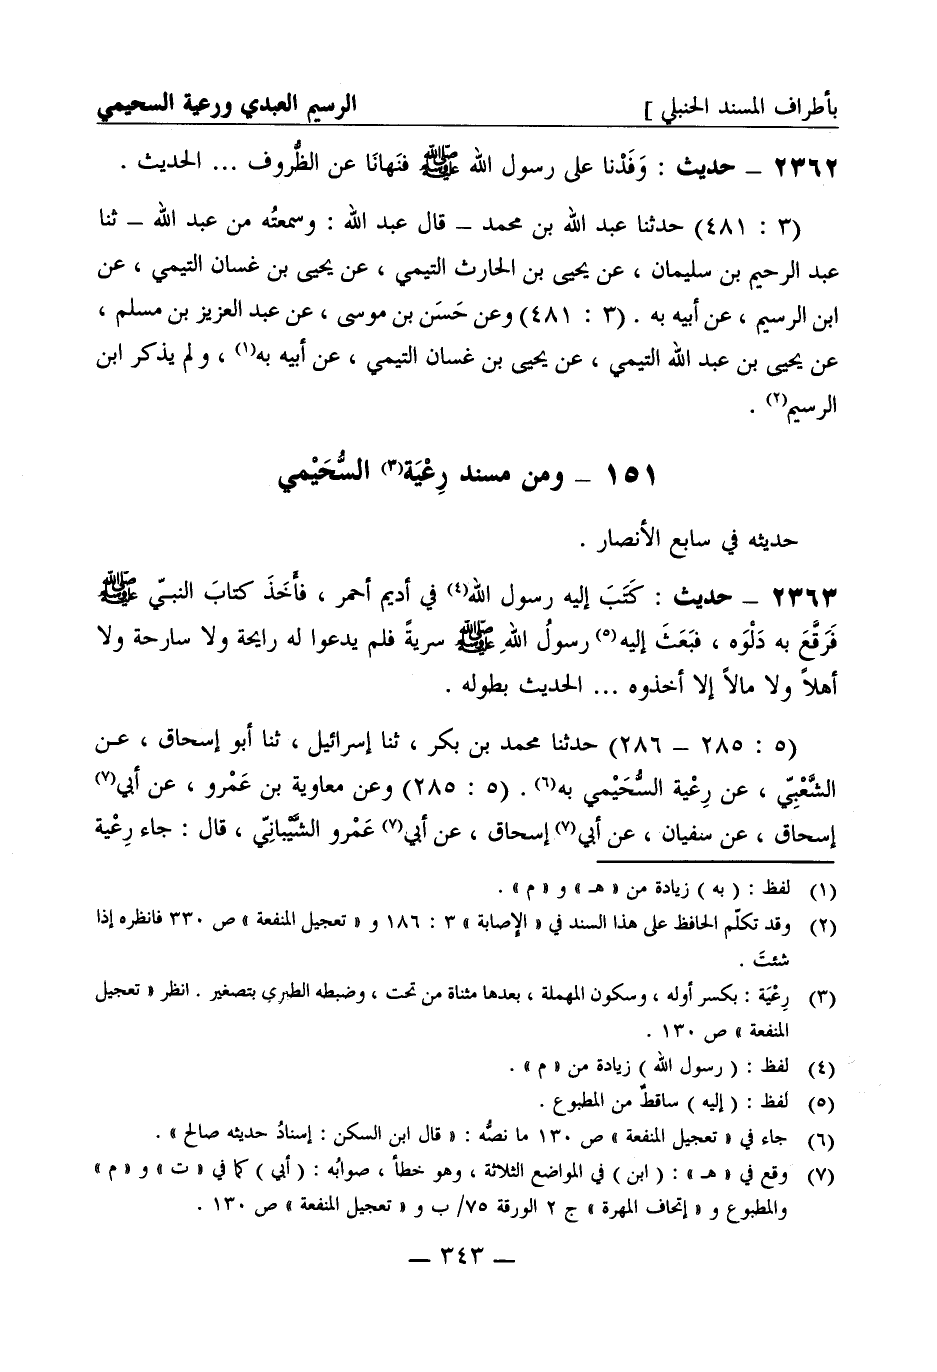 بأطراف المسند الحنبلي ] الرسيم العبدي ورعية السحيمي
٢٣٦٢ – حديث : وَفَدْنا على رسول الله ﷺ فنَهانَا عن الظُّروف ... الحديث .
(٣ : ٤٨١) حدثنا عبد الله بن محمد – قال عبد الله : وسمعتُه من عبد الله – ثنا
عبد الرحيم بن سليمان ، عن يحيى بن الحارث التيمي ، عن يحيى بن غسان التيمي ، عن
ابن الرسيم ، عن أبيه به . (٣ : ٤٨١) وعن حَسَن بن موسى ، عن عبد العزيز بن مسلم ،
عن يحيى بن عبد الله التيمي ، عن يحيى بن غسان التيمي ، عن أبيه به(١) ، ولم يذكر ابن
الرسيم(٢) .
١٥١ – ومن مسند رِعْيَة(٣) السُّحَيْمي
حديثه في سابع الأنصار .
٢٣٦٣ – حديث : كَتَبَ إليه رسول الله(٤) في أديم أحمر ، فأَخَذَ كتابَ النبيّ ﷺ
فَرَقَّعَ به دَلْوَه ، فبَعَثَ إليه(٥) رسولُ اللهِ ﷺ سريةً فلم يدعوا له رايحة ولا سارحة ولا
أهلاً ولا مالاً إلا أخذوه ... الحديث بطوله .
(٥ : ٢٨٥ – ٢٨٦) حدثنا محمد بن بكر ، ثنا إسرائيل ، ثنا أبو إسحاق ، عـن
الشَّعْبِيّ ، عن رِعْية السُّحَيْمي به(٦) . (٥ : ٢٨٥) وعن معاوية بن عَمْرو ، عن أبي(٧)
إسحاق ، عن سفيان ، عن أبي(٧) إسحاق ، عن أبي(٧) عَمْرو الشَّيْبانِيّ ، قال : جاء رِعْية
(١) لفظ : ( به ) زيادة من « هـ » و « م » .
(٢) وقد تكلّم الحافظ على هذا السند في « الإصابة » ٣ : ١٨٦ و « تعجيل المنفعة » ص ٣٣٠ فانظره إذا
شئتَ .
(٣) رِعْيَة : بكسر أوله ، وسكون المهملة ، بعدها مثناة من تحت ، وضبطه الطبري بتصغير . انظر « تعجيل
المنفعة » ص ١٣٠ .
(٤) لفظ : ( رسول الله ) زيادة من « م » .
(٥) لفظ : ( إليه ) ساقطٌ من المطبوع .
(٦) جاء في « تعجيل المنفعة » ص ١٣٠ ما نصُّه : « قال ابن السكن : إسنادُ حديثه صالح » .
(٧) وقع في « هـ » : ( ابن ) في المواضع الثلاثة ، وهو خطأ ، صوابُه : ( أبي ) كما في « ت » و « م »
والمطبوع و « إتحاف المهرة » ج ٢ الورقة ٧٥/ ب و « تعجيل المنفعة » ص ١٣٠ .
– ٣٤٣ –